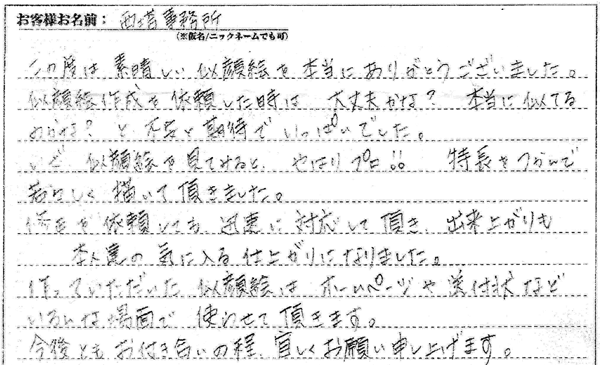 お客様お名前： 西塔事務所
（※仮名/ニックネームでも可）
この度は 素晴しい似顔絵を本当にありがとうございました。
似顔絵作成を依頼した時は 大丈夫かな？ 本当に似てる
のかな？ と 不安と期待でいっぱいでした。
いざ 似顔絵を見てみると、やはりプロ!! 特長をつかんで
若々しく描いて頂きました。
修正を依頼しても、迅速に対応して頂き、出来上がりも
本人達の気に入る仕上がりになりました。
作っていただいた似顔絵は ホームページや送付状など
いろんな場面で 使わせて頂きます。
今後ともお付き合いの程、宜しくお願い申し上げます。